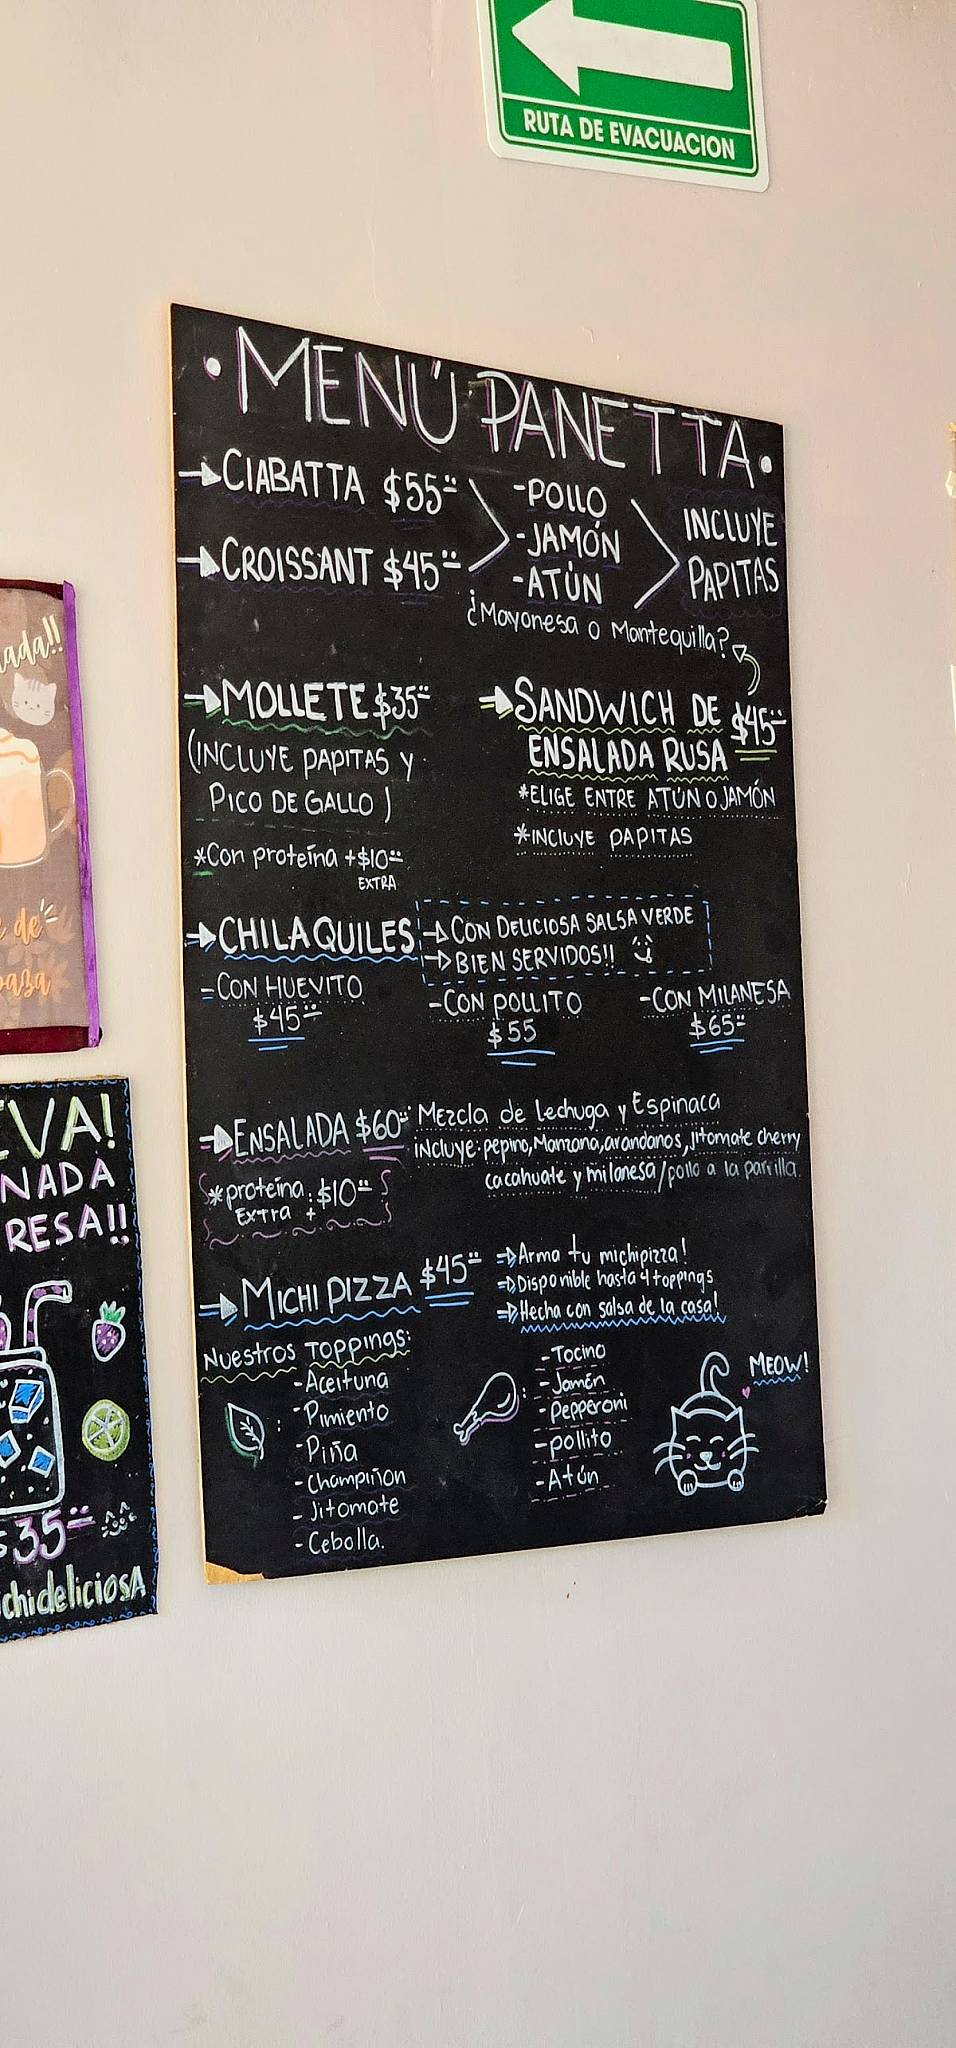 RUTA DE EVACUACION
·MENÚ PANETTA·
CIABATTA $55
CROISSANT $45
-POLLO
-JAMÓN
-ATÚN
INCLUYE
PAPITAS
¿Mayonesa o Mantequilla?
MOLLETE $35
(INCLUYE PAPITAS Y
PICO DE GALLO)
*Con proteína +$10
EXTRA
SANDWICH DE
ENSALADA RUSA $45
*ELIGE ENTRE ATÚN O JAMÓN
*INCLUYE PAPITAS
CHILAQUILES
CON DELICIOSA SALSA VERDE
BIEN SERVIDOS!!
-CON HUEVITO
$45
-CON POLLITO
$55
-CON MILANESA
$65
ENSALADA $60
*proteína: $10
Extra +
Mezcla de Lechuga y Espinaca
incluye: pepino, Manzana, arandanos, jitomate cherry
cacahuate y milanesa/pollo a la parrilla.
MICHI PIZZA $45
Arma tu michipizza!
Disponible hasta 4 toppings
Hecha con salsa de la casa!
Nuestros Toppings:
-Aceituna
-Pimiento
-Piña
-Champiñon
-Jitomate
-Cebolla.
-Tocino
-Jamón
-Pepperoni
-pollito
-Atún
MEOW!
ada!!
de
aza
VA!
NADA
RESA!!
$35
chideliciosA